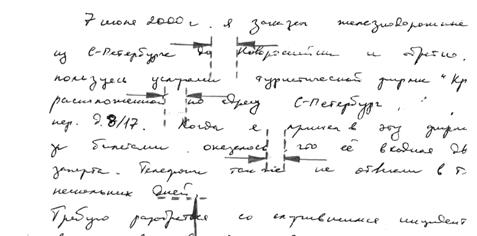 7 июля 2000 г. я заказал железнодорожные
из С-Петербурга до Новороссийска и обратно,
пользуясь услугами туристической фирмы "Кр
расположенной по адресу С-Петербург,
пер. д. 8/17. Когда я пришла в эту фирму
за билетами, оказалось, что её входная дв
заперта. Телефоны также не отвечали в т.
нескольких дней
Требую разобраться со случившимся инцидент